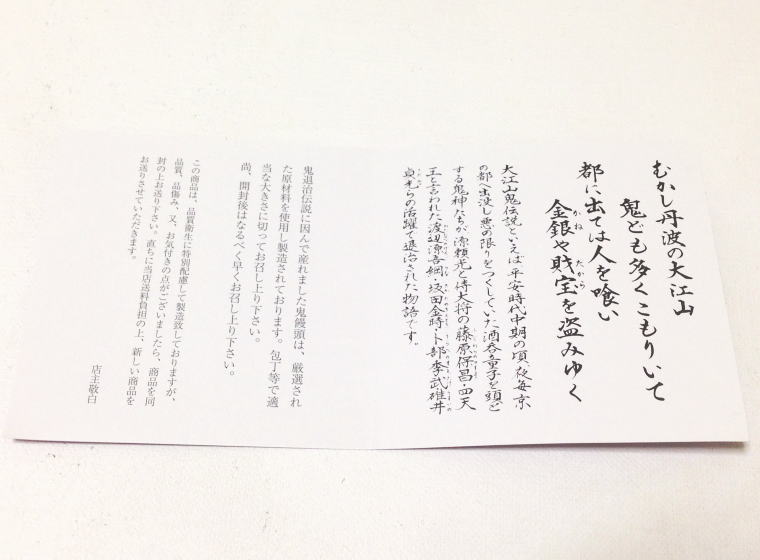 むかし丹波の大江山
鬼ども多くこもりいて
都に出ては人を喰い
金銀や財宝を盗みゆく
大江山鬼伝説といえば、平安時代中期の頃、夜毎、京
の都へ出没し悪の限りをつくしていた酒呑童子を頭と
する鬼神たちが、源頼光と侍大将の藤原保昌・四天
王と言われた渡辺源吾綱・坂田金時・卜部季武・碓井
貞光らの活躍で退治された物語です。
鬼退治伝説に因んで産れました鬼饅頭は、厳選され
た原材料を使用し製造されております。包丁等で適
当な大きさに切ってお召し上り下さい。
尚、開封後はなるべく早くお召し上り下さい。
この商品は、品質衛生に特別配慮して製造致しておりますが、
品質、品傷み、又、お気付きの点がございましたら、商品を同
封の上お送り下さい。直ちに当店送料負担の上、新しい商品を
お送りさせていただきます。
店主敬白